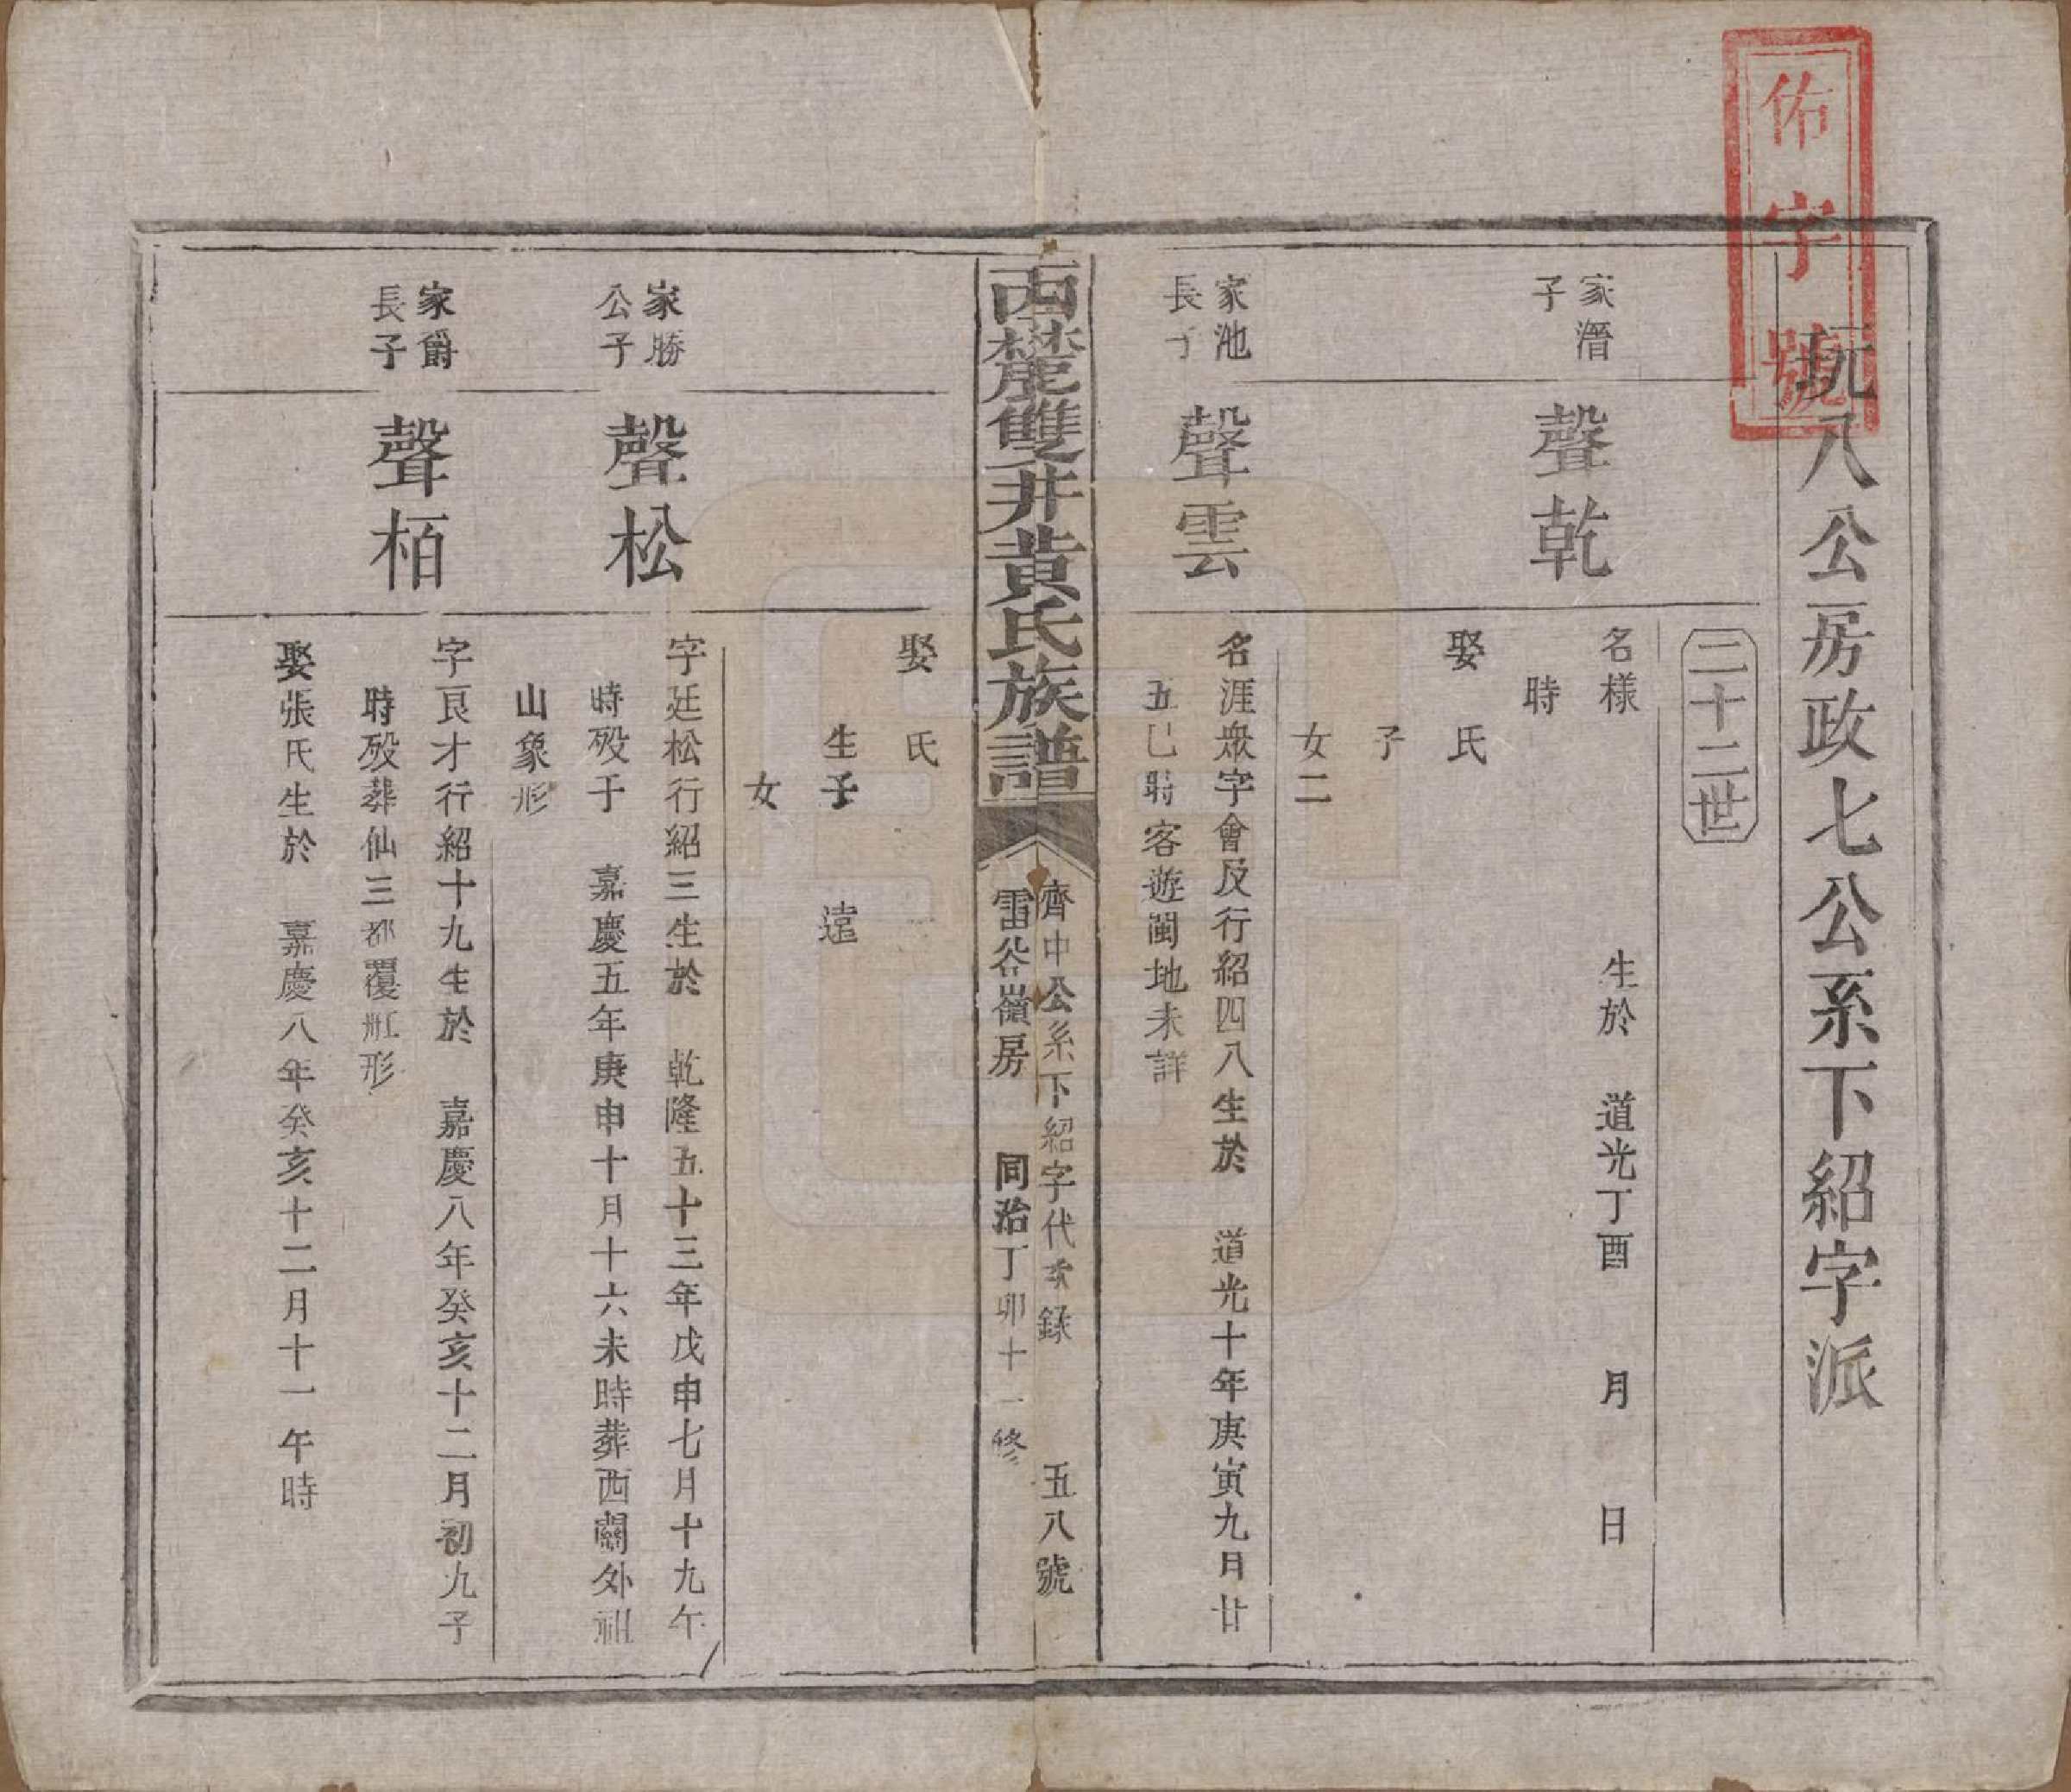 佑字號
抏八公房政七公系下紹字派
二十二世
家潘
子
聲乾
名樣 生於 道光丁酉 月 日
時
娶 氏
子
女二
家池
長子
聲雲
名涯衆字會及行紹四八生於 道光十年庚寅九月廿
五巳時客遊閩地未詳
西麓雙井黃氏族譜
濟中公系下紹字代世錄 五八號
雷谷嶺房 同治丁卯十一修
娶 氏
生子 遠
女
家勝
公子
聲松
字廷松行紹三生於 乾隆五十三年戊申七月十九午
時歿于 嘉慶五年庚申十月十六未時葬西關外祖
山象形
家爵
長子
聲栢
字良才行紹十九生於 嘉慶八年癸亥十二月初九子
時歿葬仙三都覆缸形
娶張氏生於 嘉慶八年癸亥十二月十一午時